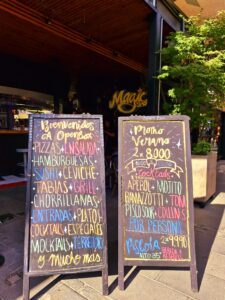 Magic
Bienvenidos
A OpenBar
PIZZAS • ENSALADA
HAMBURGUESAS
SUSHI • CEVICHE
TABLAS • GRILL
CHORRILLANAS
ENTRADAS • PLATO
COCKTAILS • ESPECIALES
MOCKTAILS •
y mucho mas
Promo
Verano
2x 8.000
Cocktails
APEROL • MOJITO
RAMAZZOTTI • TOM
PISCO SOUR • COLLINS
POR PERSONA
Piscola
2x 9990